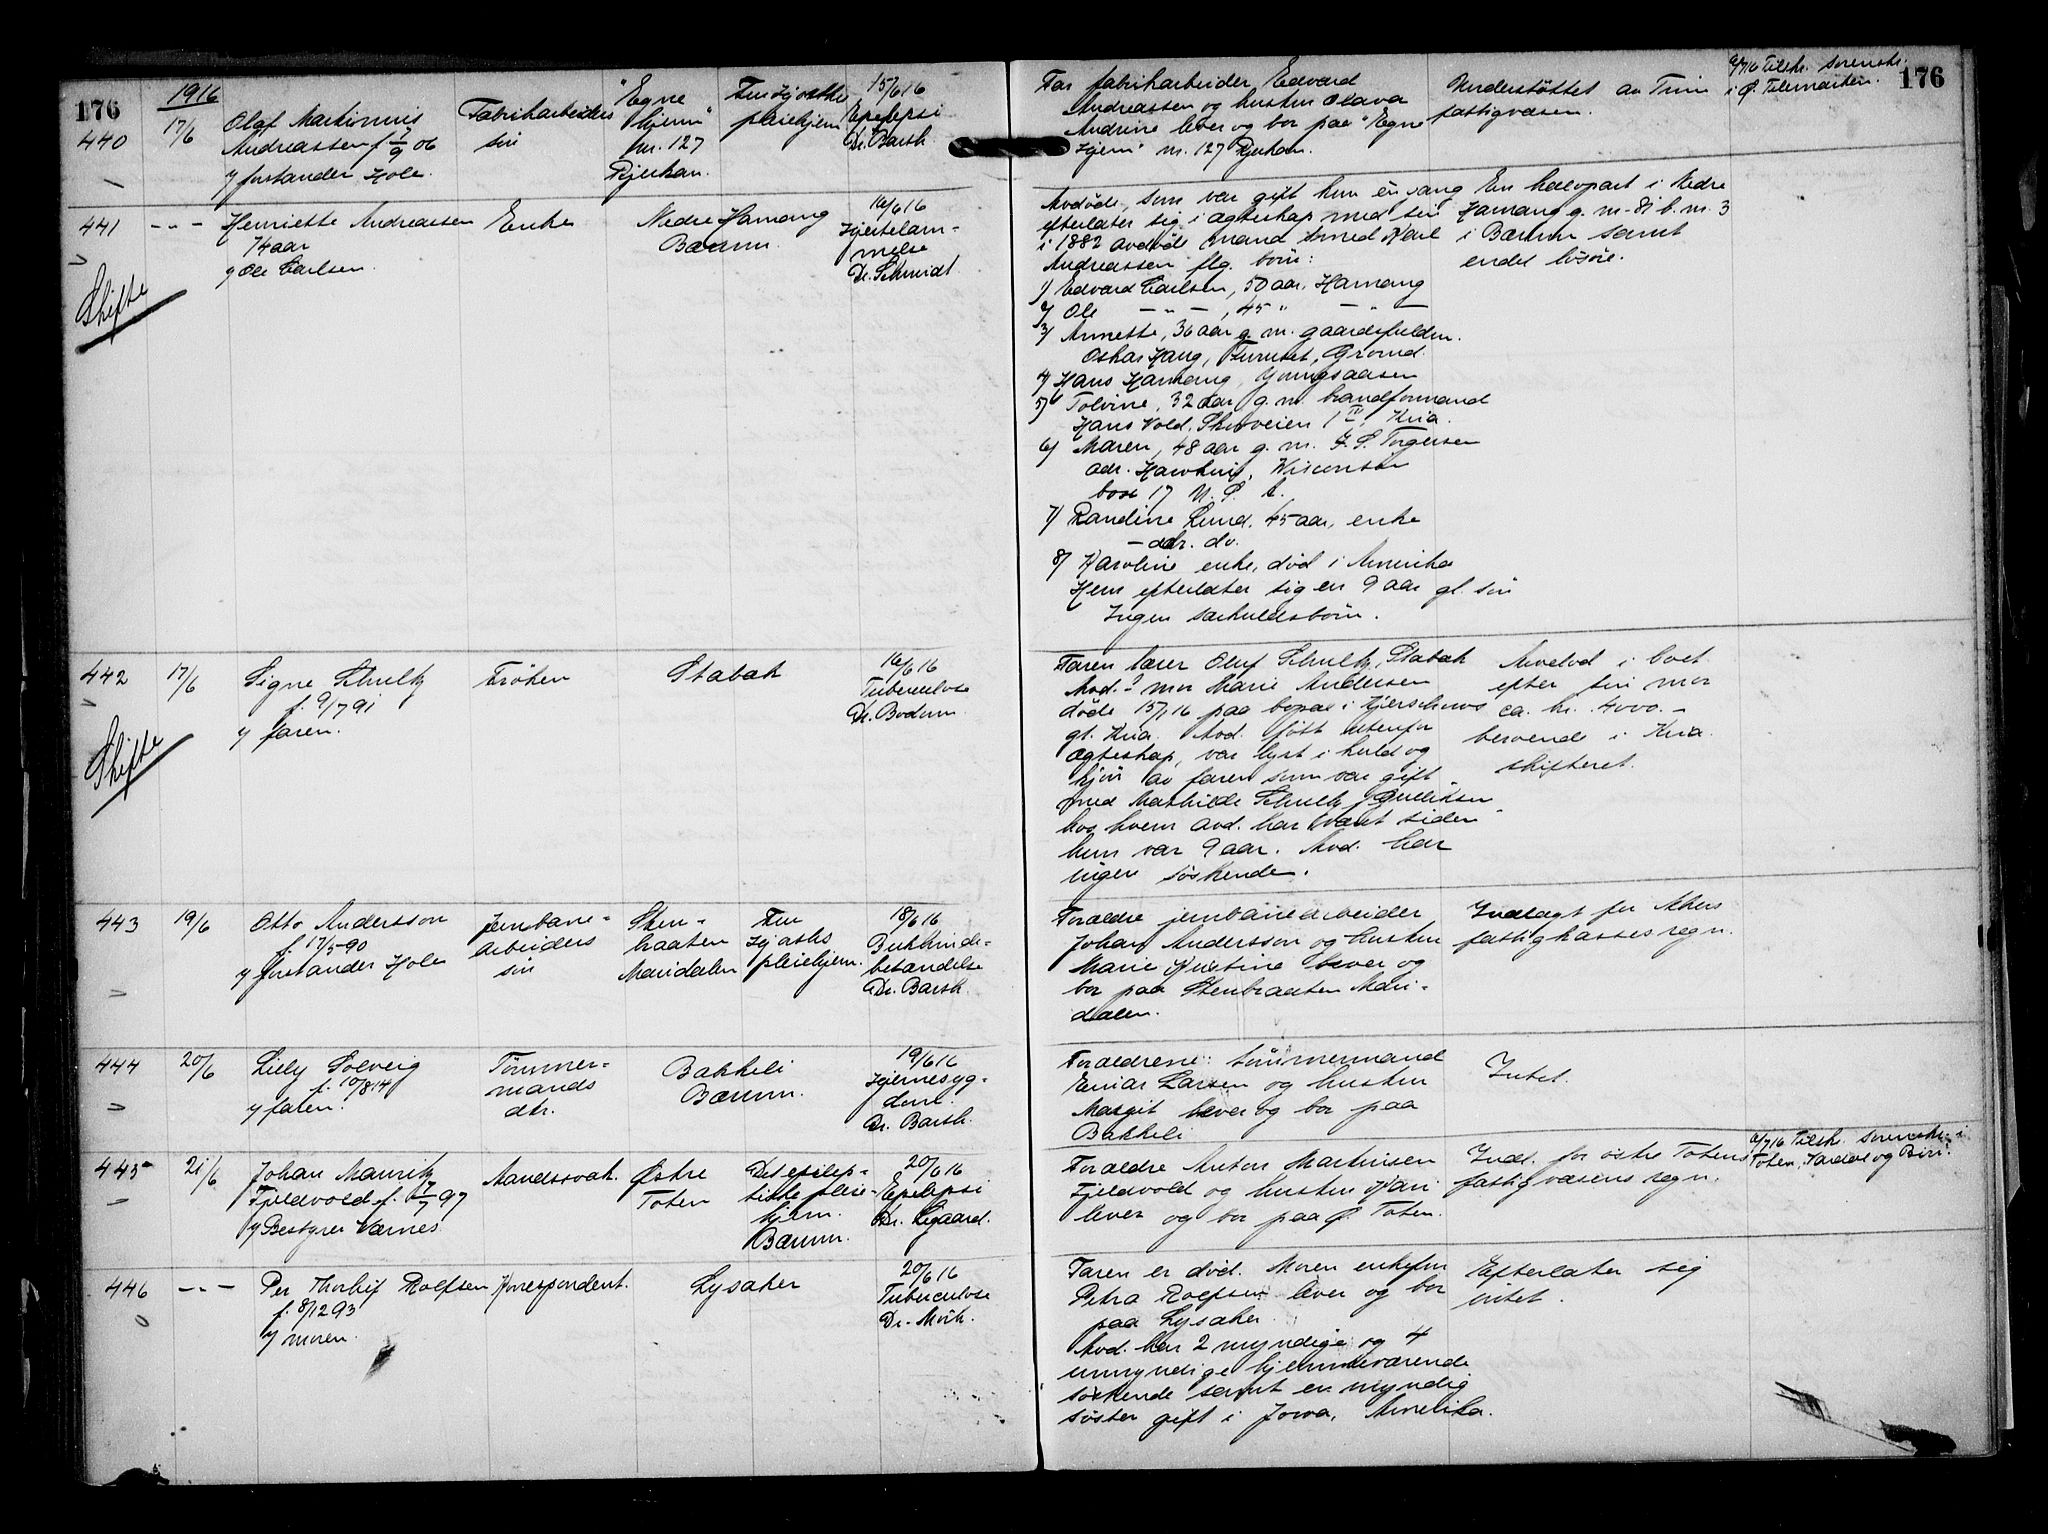 176
1916
440
17/6
Olaf Martinius
Andreassen f 7/9 06
v/ forstander Hole
Fabrikarbeiders
søn
"Egne
hjem"
nr. 127
Rjukan.
pleiehjem
15/6 16
Epelepsi
Dr. Barth
Far fabrikarbeider Edvard
Andreassen og hustru Olava
Andrine lever og bor paa "Egne
Hjem" nr. 127 Rjukan.
Understøttet av Tinn
fattigvæsen.
6/7 16 Tilskr. sorenskr.
i Ø. Telemarken.
176
441
- " -
Skifte
Henriette Andreassen
74 aar
v/ Ole Carlsen.
Enke
Nedre Hamang
Bærum.
16/6 16
Hjertelam-
melse
Dr. Schmidt
Avdøde, som var gift kun en gang
efterlater sig i egteskap med sin
i 1882 avdøde mand Karl
Andreassen flg. børn:
1) Edvard Carlsen, 50 aar, Hamang
2) Ole - " - , 45 " - " -
3) Annette, 36 aar g. m. gaardsfuldm.
Oskar Haug, Furuset, Grorud.
4) Hans Hamang, Youngsaasen
5) Tolvine, 32 aar g. m. brandformand
Hans Vold, 1 IV, Kria.
6) Maren, 48 aar g. m. Torgersen
adr. Hawkins, Wisconsin
box 17 U. S. A.
7) Randine Lund, 45 aar, enke
- adr. do.
8) Karoline enke, død i Amerika
Hun efterlater sig en 9 aar gl. søn
Ingen særkuldsbørn.
En halvpart i Nedre
Hamang g. nr. 81 b. nr. 3
i Bærum samt
endel løsøre.
442
17/6
Skifte
Signe Schultz
f. 9/7 91
v/ faren.
Frøken
Stabæk
16/6 16
Tuberculose
Dr. Bodom
Faren lærer Oluf Schultz, Stabæk
Avd.s mor Marie Andersen
døde 15/1 16 paa bopæl i Hjerschows
gt. Kria. Avd. født utenfor
egteskap, var lyst i kuld og
kjøn av faren som var gift
med Mathilde Schultz f. Gulliksen
hos hvem avd. har været siden
hun var 9 aar. Avd. har
ingen søskende.
Arvelod i boet
efter sin mor
ca. kr. 4000.-
beroende i Kria.
skifteret.
443
19/6
Otto Andersson
f. 17/5-90
v/ forstander Hole
Jernbane-
arbeiders
søn
Sten-
braaten
Maridalen
pleiehjem.
18/6 16
Bukhinde-
betændelse
Dr. Barth.
Forældre jernbanearbeider
Johan Andersson og hustru
Marie Kristine lever og
bor paa Stenbraaten Mari-
dalen.
Indlagt for Akers
fattigkasses regn.
444
20/6
Lilly Solveig
f. 10/8 14
v/ faren.
Tømmer-
mands
dtr.
Bakkeli
Bærum.
19/6 16
Hjernesyg-
dom.
Dr. Barth.
Forældrene: tømmermand
Einar Larsen og hustru
Margit lever og bor paa
Bakkeli
Intet.
445
21/6
Johan Mauritz
Fjeldvold f. 7/7 97
v/ Bestyrer Værnes.
Aandssvak.
Østre
Toten
Det epilep-
tiske pleie-
hjem.
Bærum.
20/6 16
Epelepsi
Dr. Ligaard.
Forældre Anton Martinsen
Fjeldvold og hustru Kari
lever og bor paa Ø. Toten.
Indl. for østre Totens
fattigvæsens regn.
6/7 16 Tilskr. sorenskr. i
Toten, Vardal og Biri.
446
- " -
Per Thorleif Rolfsen
f. 8/12 93
v/ moren.
Korrespondent.
Lysaker
20/6 16
Tuberculose
Dr. Mørk.
Faren er død. Moren enkefru
Petra Rolfsen lever og bor
paa Lysaker.
Avd. har 2 myndige og 4
umyndige hjemmeværende
søskende samt en myndig
søster gift i Jowa, Amerika.
Efterlater sig
intet.